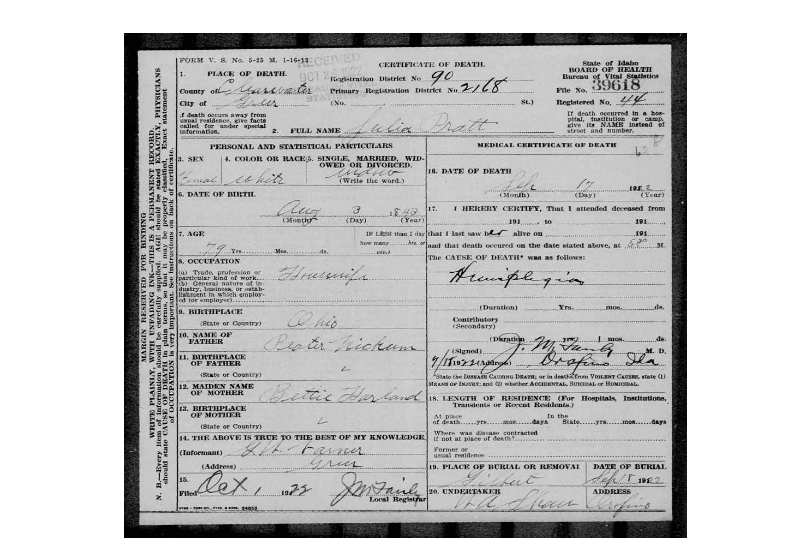 FORM V. S. No. 5-25 M. 1-16-12
RECEIVED
OCT
CERTIFICATE OF DEATH.
State of Idaho
BOARD OF HEALTH
Bureau of Vital Statistics
1. PLACE OF DEATH.
Registration District No. 90
County of Clearwater
Primary Registration District No. 2168
File No. 39618
City of Greer
(No. St.)
Registered No. 44
If death occurs away from usual residence, give facts called for under special information.
If death occurred in a hospital, institution or camp, give its NAME instead of street and number.
2. FULL NAME Julia Pratt
PERSONAL AND STATISTICAL PARTICULARS
3. SEX
Femal
4. COLOR OR RACE
White
5. SINGLE, MARRIED, WIDOWED OR DIVORCED.
Widow
(Write the word.)
6. DATE OF BIRTH.
Aug 3 1843
(Month) (Day) (Year)
7. AGE
79 Yrs. Mos. ds.
IF LESS than 1 day
how many hrs or
min.?
8. OCCUPATION
(a) Trade, profession or particular kind of work
(b) General nature of industry, business, or establishment in which employed (or employer)
Housewife
9. BIRTHPLACE
(State or Country)
Ohio
10. NAME OF FATHER
Peater Nickum
11. BIRTHPLACE OF FATHER
(State or Country)
12. MAIDEN NAME OF MOTHER
Garland
13. BIRTHPLACE OF MOTHER
(State or Country)
14. THE ABOVE IS TRUE TO THE BEST OF MY KNOWLEDGE.
(Informant) Varner
(Address) Greer
15.
Filed Oct 1 1922
J M Fairly
Local Registrar
MEDICAL CERTIFICATE OF DEATH
16. DATE OF DEATH
Sep 17 1922
(Month) (Day) (Year)
17. I HEREBY CERTIFY, That I attended deceased from
191 , to 191
that I last saw her alive on 191
and that death occured on the date stated above, at M.
The CAUSE OF DEATH* was as follows:
Hemiplegia
(Duration) Yrs. mos. ds.
Contributory
(Secondary)
(Duration yrs. mos. ds.
(Signed) J. M. Fairly M. D.
9/18 1922 (Address) Orofino Ida
*State the DISEASE CAUSING DEATH; or in deaths from VIOLENT CAUSES, state (1) MEANS OF INJURY; and (2) whether ACCIDENTAL, SUICIDAL OR HOMICIDAL.
18. LENGTH OF RESIDENCE (For Hospitals, Institutions, Transients or Recent Residents.)
At place of death yrs. mos. days
In the State yrs. mos. days
Where was disease contracted if not at place of death?
Former or usual residence
19. PLACE OF BURIAL OR REMOVAL
Gilbert
DATE OF BURIAL
Sep 18 1922
20. UNDERTAKER
Shaw
ADDRESS
Orofino
MARGIN RESERVED FOR BINDING
WRITE PLAINLY, WITH UNFADING INK—THIS IS A PERMANENT RECORD.
N. B.—Every item of information should be carefully supplied. AGE should be stated EXACTLY. PHYSICIANS should state CAUSE OF DEATH in plain terms, so that it may be properly classified. Exact statement of OCCUPATION is very important. See instructions on back of certificate.